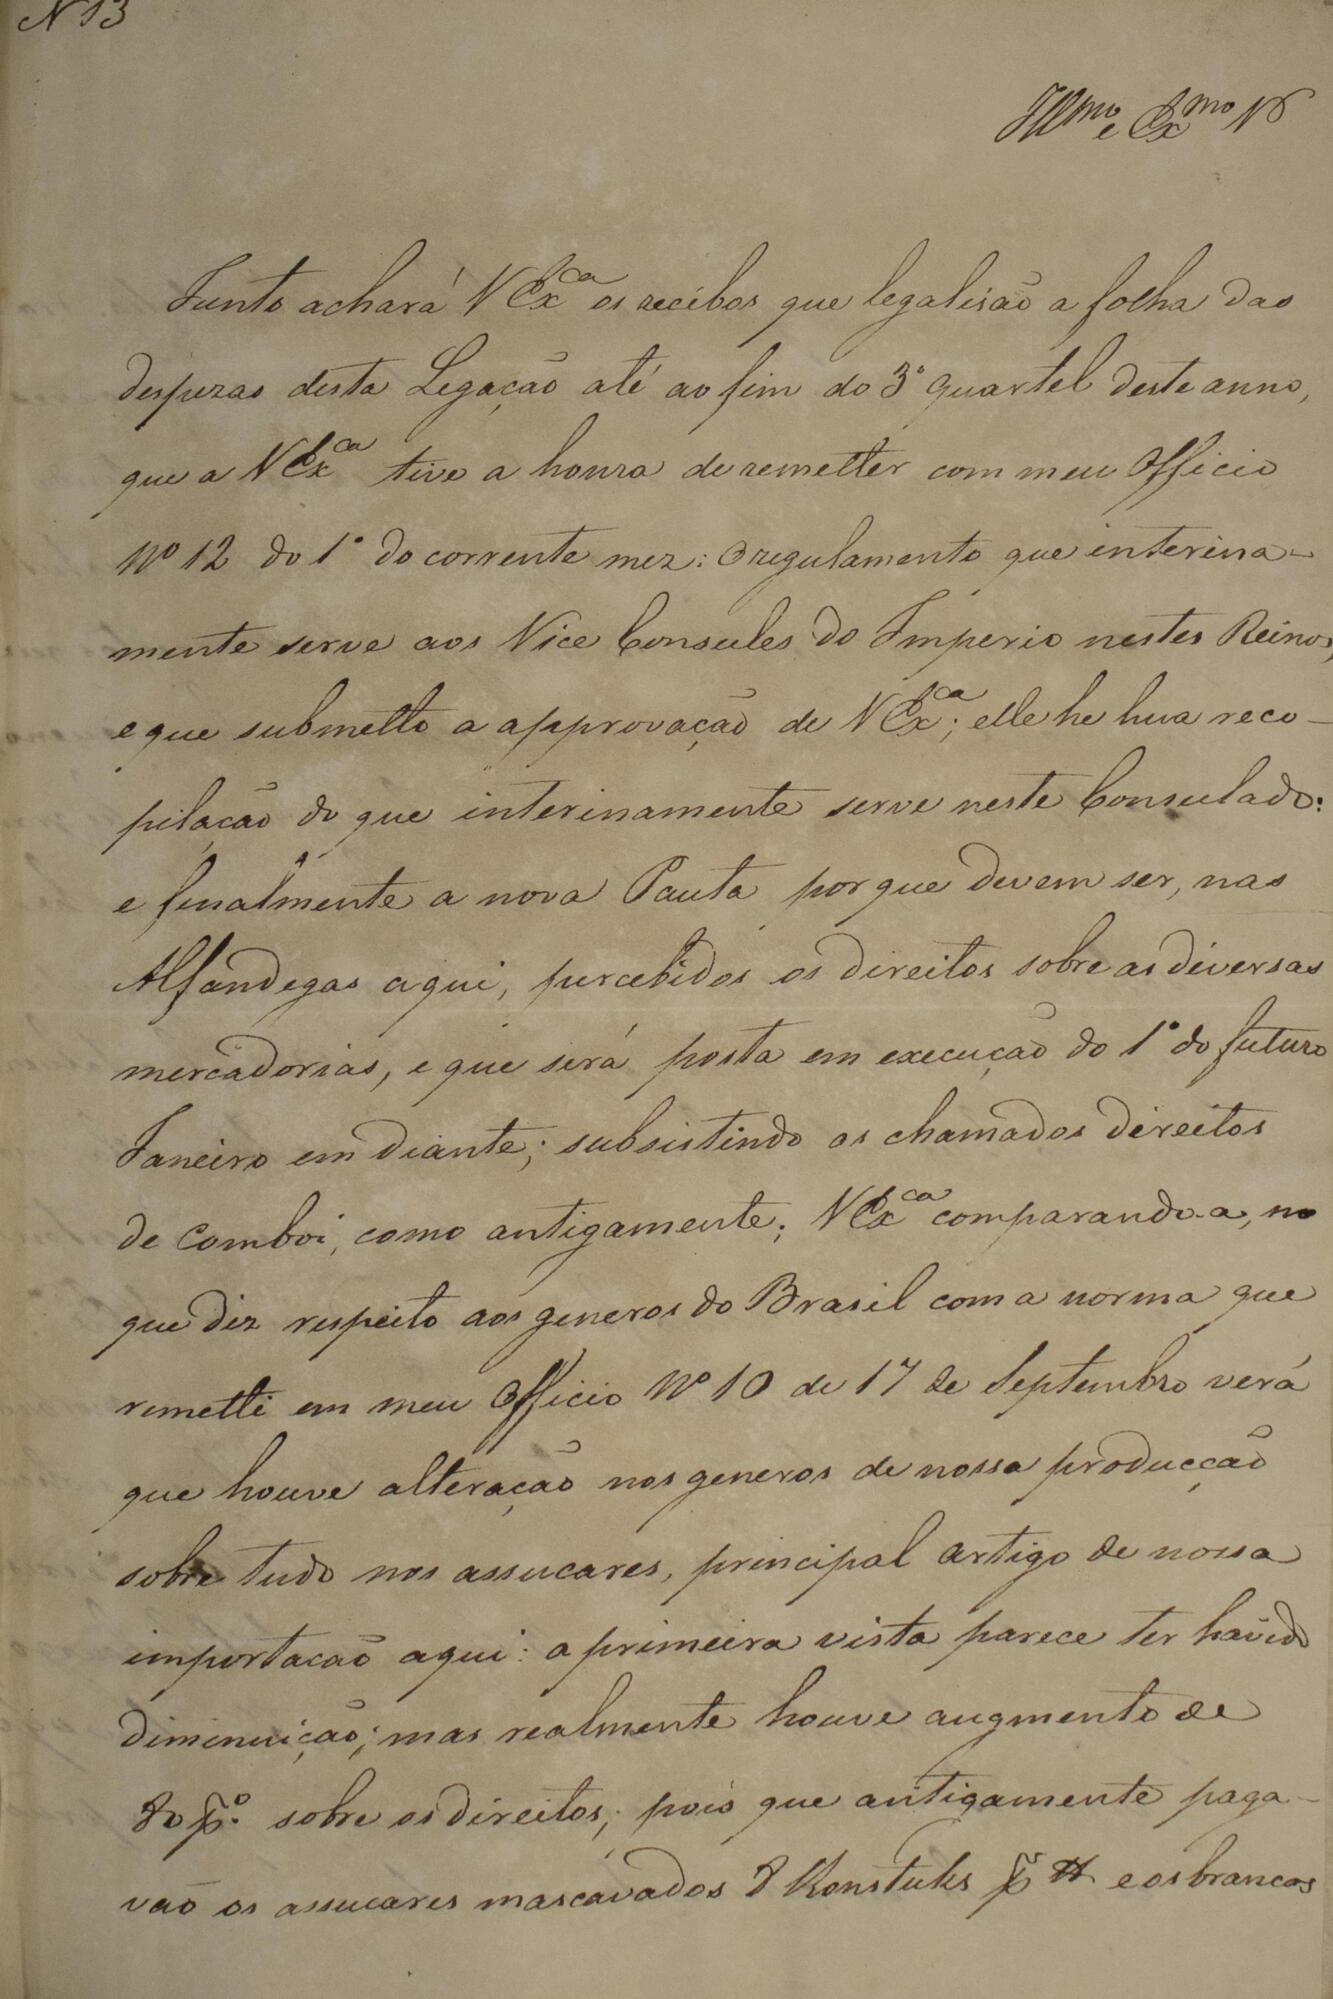 N 13
Illmo e Exmo Sr
Junto achará V Exca os recibos que legalisão a folha das
despezas desta Legação até ao fim do 3º quartel deste anno,
que a V Exca tive a honra de remetter com meu Officio
Nº 12 do 1º do corrente mez: o regulamento que interina-
mente serve aos Vice Consules do Imperio nestes Reinos,
e que submetto a approvação de V Exca; elle he hua reco-
pilação do que interinamente serve neste Consulado:
e finalmente a nova Pauta por que devem ser, nas
Alfandegas aqui, percebidos os direitos sobre as diversas
mercadorias, e que será posta em execução do 1º do futuro
Janeiro em diante; subsistindo os chamados direitos
de Comboi, como antigamente; V Exca comparando-a, no
que diz respeito aos generos do Brasil com a norma que
remetti em meu Officio Nº 10 de 17 de Septembro verá
que houve alteração nos generos de nossa producção
sobre tudo nos assucares, principal artigo de nossa
importacão aqui: a primeira vista parece ter havido
diminuição; mas realmente houve augmento de
80 p.º sobre os direitos; pois que antigamente paga-
vão os assucares mascavados 8 Ronstuks p ℔ e os brancos